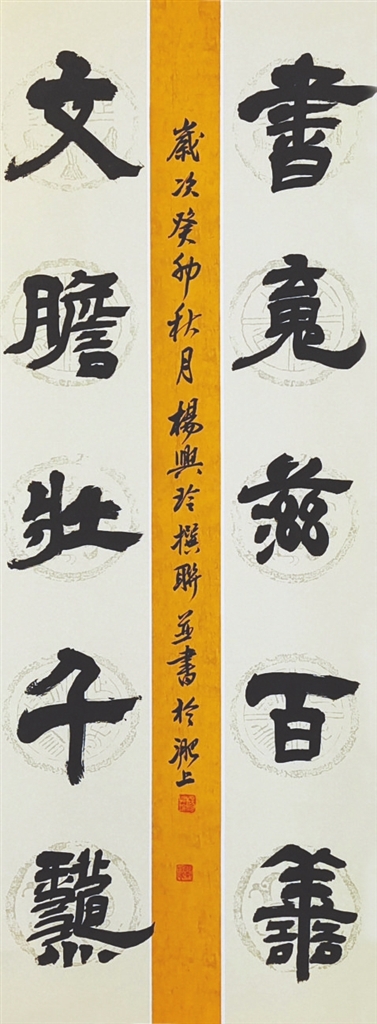 書魂滋百譱
文膽壯千
歲次癸卯秋月楊興玲撰聯並書於淝上